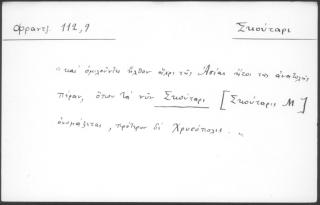 Φραντζ. 112,9 Σκούταρι
"καὶ ὁμιλοῦντες ἦλθον ἄχρι τῆς Ἀσίας ἤτοι τῆς ἀνατολῆς
πέραν, ὅπου τὰ νῦν Σκούταρι [Σκούταρις M]
ὀνομάζεται, πρότερον δὲ Χρυσόπολις."